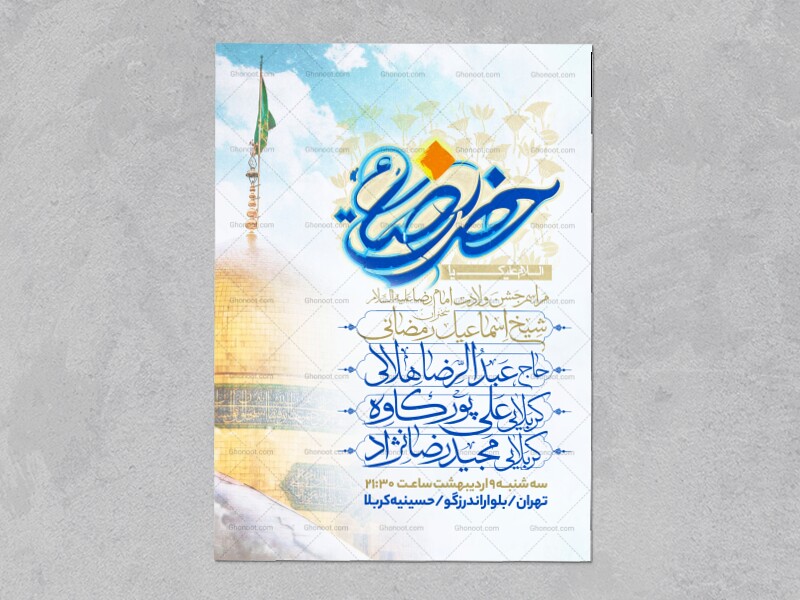 السلام علیک یا
حضرت رضا
مراسم جشن ولادت امام رضا علیه السلام
سخنران
شیخ اسماعیل رمضانی
حاج عبدالرضا هلالی
کربلایی علی پورکاوه
کربلایی مجید رضانژاد
سه شنبه ۹ اردیبهشت ساعت ۲۱:۳۰
تهران/بلوار اندرزگو/حسینیه کربلا
Ghonoot.com